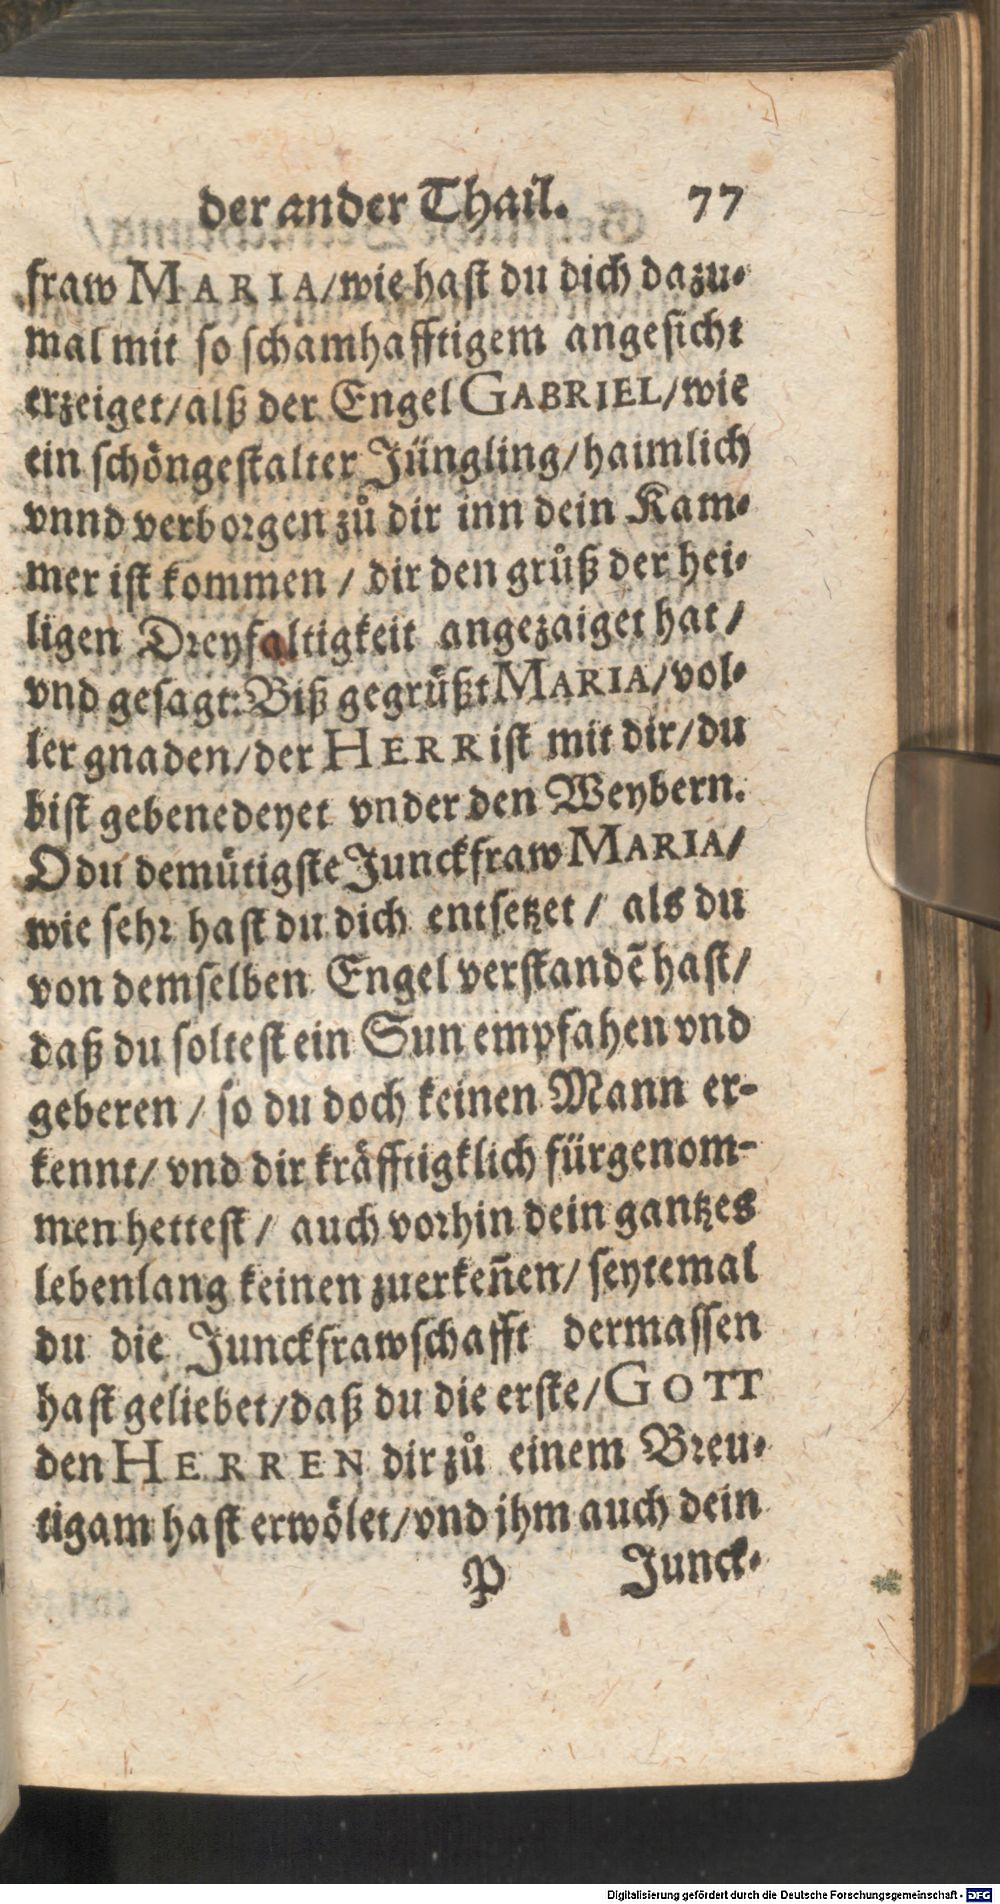 der ander Thail. 77
fraw MARIA/wie hast du dich dazu-
mal mit so schamhafftigem angesicht
erzeiget/alß der Engel GABRIEL/wie
ein schöngestalter Jüngling/haimlich
vnnd verborgen zů dir inn dein Kam-
mer ist kommen / dir den grůß der hei-
ligen Dreyfaltigkeit angezaiget hat/
vnd gesagt: Biß gegrüßt MARIA/vol-
ler gnaden/der HERR ist mit dir/du
bist gebenedeyet vnder den Weybern.
O du demütigste Junckfraw MARIA/
wie sehr hast du dich entsetzet / als du
von demselben Engel verstandẽ hast/
daß du soltest ein Sun empfahen vnd
geberen / so du doch keinen Mann er-
kennt/ vnd dir kräfftigklich fürgenom-
men hettest / auch vorhin dein gantzes
lebenlang keinen zuerkeñen/ seytemal
du die Junckfrawschafft dermassen
hast geliebet/daß du die erste/GOTT
den HERREN dir zů einem Breu-
tigam hast erwölet/vnd jhm auch dein
P Junck-
Digitalisierung gefördert durch die Deutsche Forschungsgemeinschaft - DFG